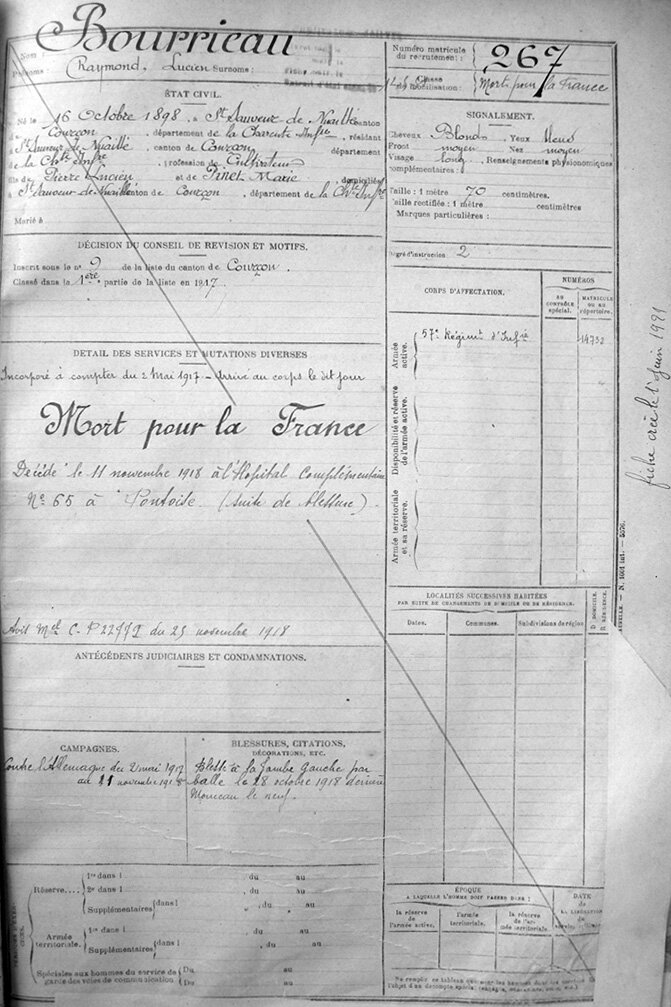 Bourrieau
Nom :
Prénoms : Raymond, Lucien Surnoms :
Numéro matricule
du recrutement :
267
Classe
de mobilisation :
Mort pour la France
ÉTAT CIVIL.
Né le 16 Octobre 1898, à St Sauveur de Nuaillé canton
de Courçon, département de la Charente Infre, résidant
St Sauveur de Nuaillé, canton de Courçon, département
de la Chte Infre, profession de Cultivateur
fils de Pierre Lucien et de Pinet Marie domiciliés
à St Sauveur de Nuaillé canton de Courçon, département de la Chte Infre
Marié à
SIGNALEMENT.
Cheveux Blonds Yeux bleus
Front moyen Nez moyen
Visage long Renseignements physionomiques
complémentaires :
Taille : 1 mètre 70 centimètres.
Taille rectifiée : 1 mètre centimètres
Marques particulières :
Degré d'instruction : 2
DÉCISION DU CONSEIL DE REVISION ET MOTIFS.
Inscrit sous le n° 9 de la liste du canton de Courçon.
Classé dans la 1ère partie de la liste en 1917
DETAIL DES SERVICES ET MUTATIONS DIVERSES
Incorporé à compter du 2 Mai 1917 - Arrivé au corps le dit jour
Mort pour la France
Décédé le 11 novembre 1918 à l'Hopital Complémentaire
No 65 à Pontoise (suite de blessure).
Avis Mel C-P 22779 du 25 novembre 1918
ANTÉCÉDENTS JUDICIAIRES ET CONDAMNATIONS.
CAMPAGNES.
Contre l'Allemagne du 2 mai 1917
au 11 novembre 1918
BLESSURES, CITATIONS,
DÉCORATIONS, ETC.
Blessé à la jambe Gauche par
balle le 28 octobre 1918 derrière
Monceau le neuf.
CORPS D'AFFECTATION.
NUMÉROS
AU
CONTRÔLE
spécial.
MATRICULE
OU AU
répertoire.
Armée
active.
57e Régimt d'Infie
14732
Disponibilité et réserve
de l'armée active.
Armée territoriale
et sa réserve.
LOCALITÉS SUCCESSIVES HABITÉES
PAR SUITE DE CHANGEMENTS DE DOMICILE OU DE RÉSIDENCE.
Dates.
Communes.
Subdivisions de région
D DOMICILE.
R RÉSIDENCE.
Réserve....
1re dans l du au
2e dans l du au
Supplémentaires dans l du au
Armée
territoriale.
1re dans l du au
Supplémentaires dans l du au
Spéciales aux hommes du service de
garde des voies de communication
Du au
Du au
ÉPOQUE
A LAQUELLE L'HOMME DOIT PASSER DANS :
la réserve
de l'armée active.
l'armée
territoriale.
la réserve
de l'ar-
mée territoriale.
DATE
de
LA LIBÉRATION
du
service
fiche créée le 1 juin 1921